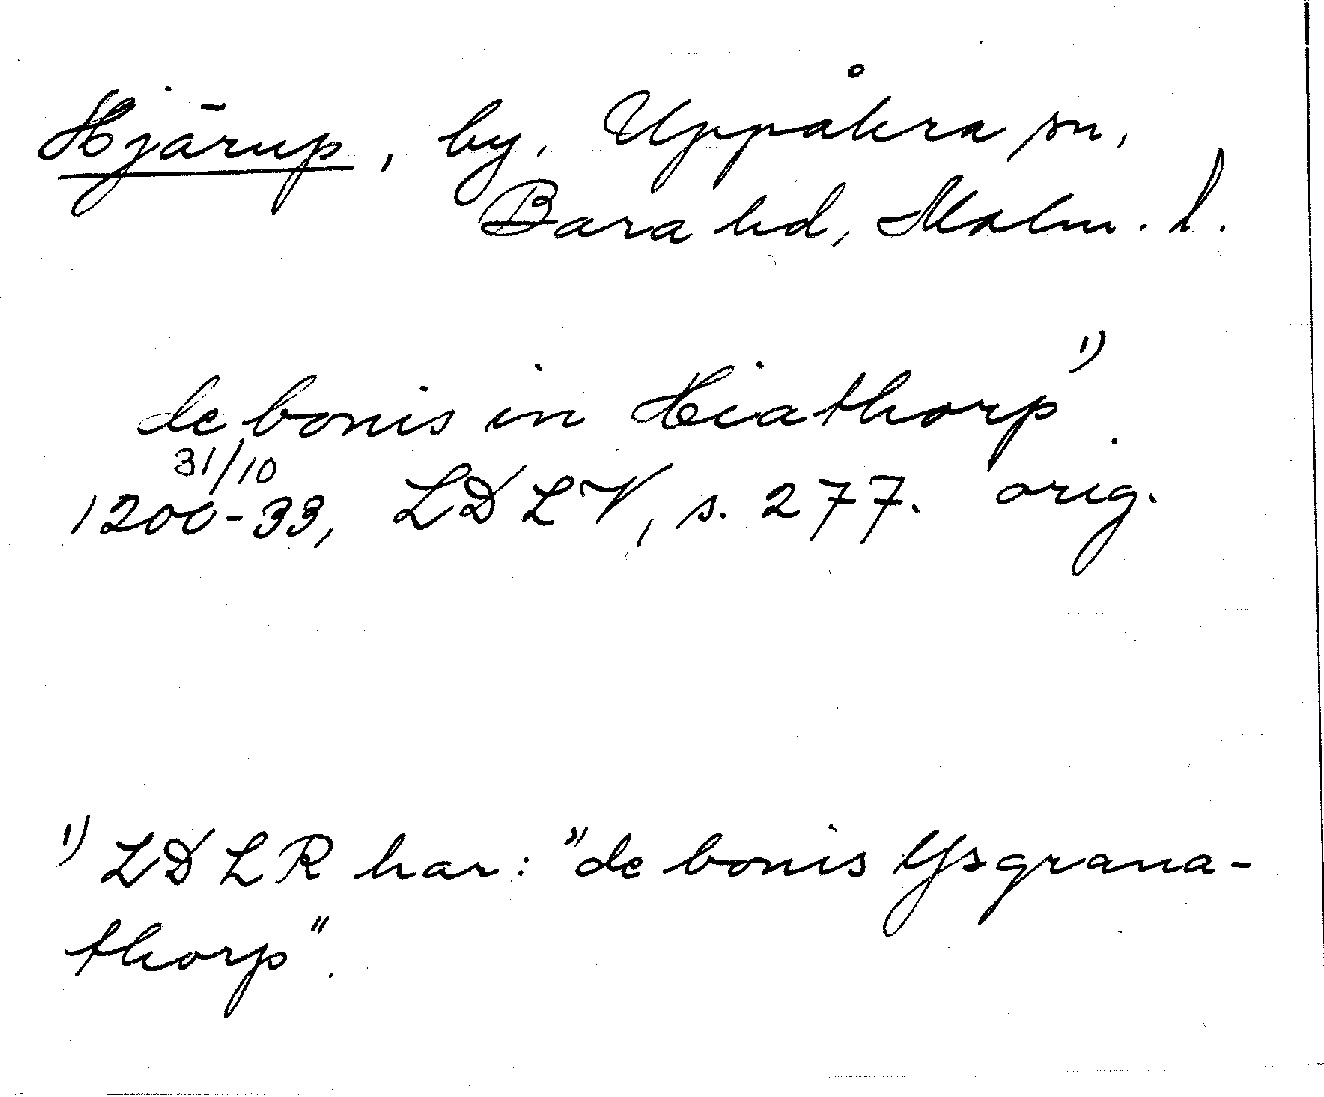 Hjärup, by, Uppåkra sn,
Bara hd, Malm. l.
de bonis in Hiathorp 1)
31/10
1200-33, LDLV, s. 277. orig.
1) LDLR har: "de bonis Ysgrana-
thorp".